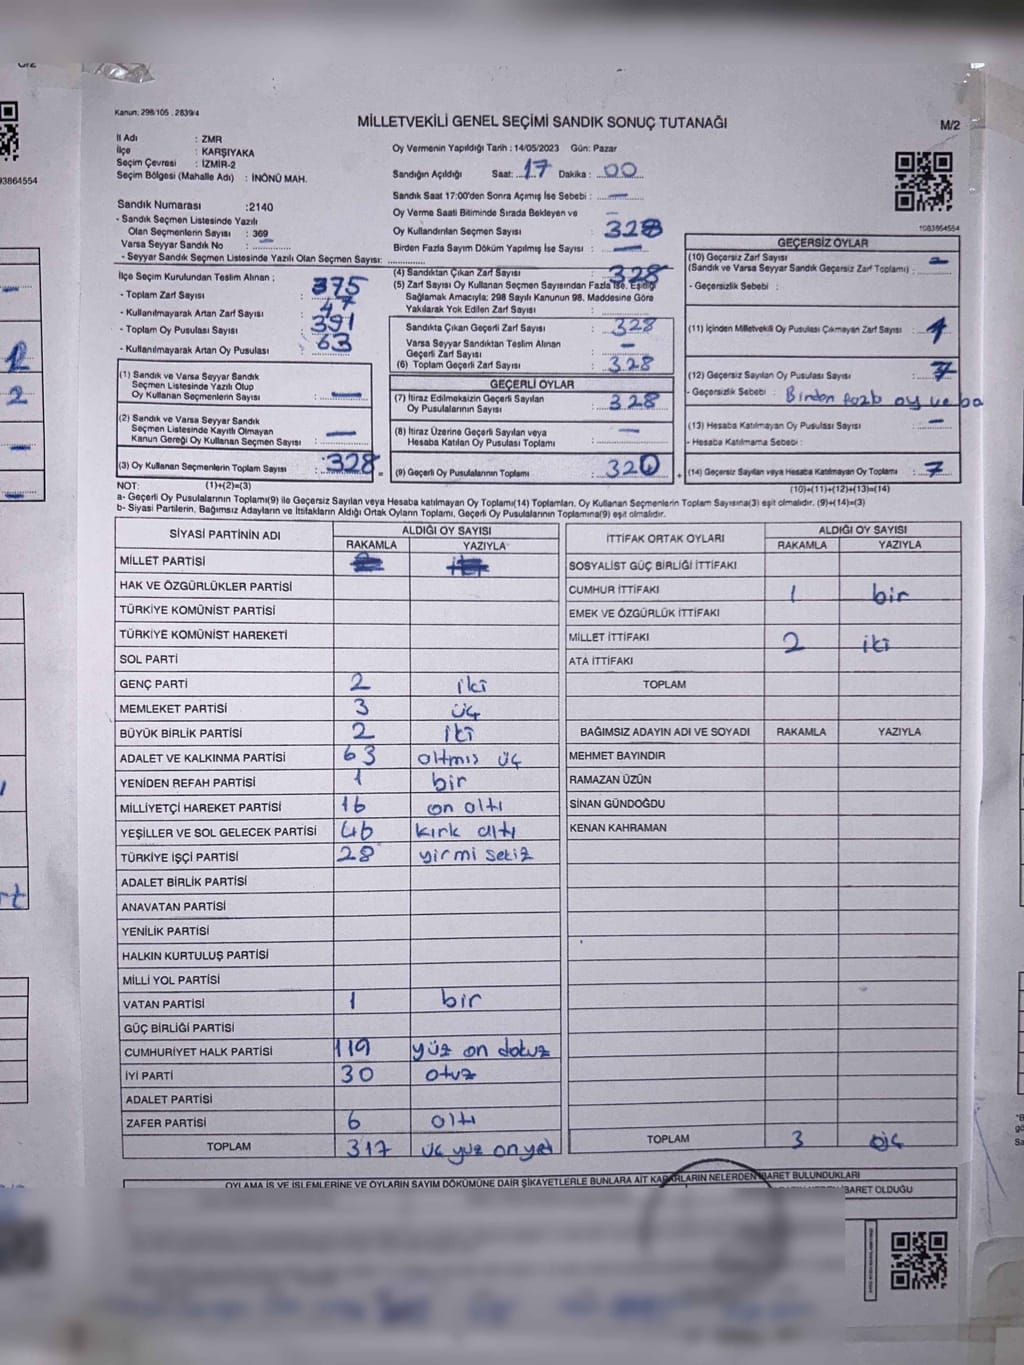 Kanun: 298/105 , 2839/4
MİLLETVEKİLİ GENEL SEÇİMİ SANDIK SONUÇ TUTANAĞI
M/2
İl Adı : ZMR
İlçe : KARŞIYAKA
Seçim Çevresi : İZMİR-2
Seçim Bölgesi (Mahalle Adı) : İNÖNÜ MAH.
Oy Vermenin Yapıldığı Tarih : 14/05/2023 Gün: Pazar
Sandığın Açıldığı Saat: 17 Dakika : 00
Sandık Saat 17:00'den Sonra Açımış İse Sebebi : —
Sandık Numarası :2140
- Sandık Seçmen Listesinde Yazılı
Olan Seçmenlerin Sayısı : 369
Varsa Seyyar Sandık No :
- Seyyar Sandık Seçmen Listesinde Yazılı Olan Seçmen Sayısı:
Oy Verme Saati Bitiminde Sırada Bekleyen ve
Oy Kullandırılan Seçmen Sayısı : 328
Birden Fazla Sayım Döküm Yapılmış İse Sayısı : —
1083864554
93864554
İlçe Seçim Kurulundan Teslim Alınan ;
- Toplam Zarf Sayısı : 375
- Kullanılmayarak Artan Zarf Sayısı : 47
- Toplam Oy Pusulası Sayısı : 391
- Kullanılmayarak Artan Oy Pusulası : 63
(1) Sandık ve Varsa Seyyar Sandık
Seçmen Listesinde Yazılı Olup
Oy Kullanan Seçmenlerin Sayısı : —
(2) Sandık ve Varsa Seyyar Sandık
Seçmen Listesinde Kayıtlı Olmayan
Kanun Gereği Oy Kullanan Seçmen Sayısı : —
(3) Oy Kullanan Seçmenlerin Toplam Sayısı : 328 =
(4) Sandıktan Çıkan Zarf Sayısı : 328
(5) Zarf Sayısı Oy Kullanan Seçmen Sayısından Fazla ise, Eşitliği
Sağlamak Amacıyla; 298 Sayılı Kanunun 98. Maddesine Göre
Yakılarak Yok Edilen Zarf Sayısı :
Sandıkta Çıkan Geçerli Zarf Sayısı : 328
Varsa Seyyar Sandıktan Teslim Alınan
Geçerli Zarf Sayısı : —
(6) Toplam Geçerli Zarf Sayısı : 328
GEÇERLİ OYLAR
(7) İtiraz Edilmeksizin Geçerli Sayılan
Oy Pusulalarının Sayısı : 328
(8) İtiraz Üzerine Geçerli Sayılan veya
Hesaba Katılan Oy Pusulası Toplamı : —
(9) Geçerli Oy Pusulalarının Toplamı : 320 +
GEÇERSİZ OYLAR
(10) Geçersiz Zarf Sayısı
(Sandık ve Varsa Seyyar Sandık Geçersiz Zarf Toplamı) : —
- Geçersizlik Sebebi :
(11) İçinden Milletvekili Oy Pusulası Çıkmayan Zarf Sayısı : 1
(12) Geçersiz Sayılan Oy Pusulası Sayısı : 7
- Geçersizlik Sebebi : Birden fazla oy ve ba
(13) Hesaba Katılmayan Oy Pusulası Sayısı : —
- Hesaba Katılmama Sebebi :
(14) Geçersiz Sayılan veya Hesaba Katılmayan Oy Toplamı : 7
NOT: (1)+(2)=(3)
(10)+(11)+(12)+(13)=(14)
a- Geçerli Oy Pusulalarının Toplamı(9) ile Geçersiz Sayılan veya Hesaba katılmayan Oy Toplamı(14) Toplamları, Oy Kullanan Seçmenlerin Toplam Sayısına(3) eşit olmalıdır. (9)+(14)=(3)
b- Siyasi Partilerin, Bağımsız Adayların ve İttifakların Aldığı Ortak Oyların Toplamı, Geçerli Oy Pusulalarının Toplamına(9) eşit olmalıdır.
SİYASİ PARTİNİN ADI ALDIĞI OY SAYISI
RAKAMLA YAZIYLA
MİLLET PARTİSİ
HAK VE ÖZGÜRLÜKLER PARTİSİ
TÜRKİYE KOMÜNİST PARTİSİ
TÜRKİYE KOMÜNİST HAREKETİ
SOL PARTİ
GENÇ PARTİ 2 iki
MEMLEKET PARTİSİ 3 üç
BÜYÜK BİRLİK PARTİSİ 2 iki
ADALET VE KALKINMA PARTİSİ 63 altmış üç
YENİDEN REFAH PARTİSİ 1 bir
MİLLİYETÇİ HAREKET PARTİSİ 16 on altı
YEŞİLLER VE SOL GELECEK PARTİSİ 46 kırk altı
TÜRKİYE İŞÇİ PARTİSİ 28 yirmi sekiz
ADALET BİRLİK PARTİSİ
ANAVATAN PARTİSİ
YENİLİK PARTİSİ
HALKIN KURTULUŞ PARTİSİ
MİLLİ YOL PARTİSİ
VATAN PARTİSİ 1 bir
GÜÇ BİRLİĞİ PARTİSİ
CUMHURİYET HALK PARTİSİ 119 yüz on dokuz
İYİ PARTİ 30 otuz
ADALET PARTİSİ
ZAFER PARTİSİ 6 altı
TOPLAM 317 üç yüz on yedi
İTTİFAK ORTAK OYLARI ALDIĞI OY SAYISI
RAKAMLA YAZIYLA
SOSYALİST GÜÇ BİRLİĞİ İTTİFAKI
CUMHUR İTTİFAKI 1 bir
EMEK VE ÖZGÜRLÜK İTTİFAKI
MİLLET İTTİFAKI 2 iki
ATA İTTİFAKI
TOPLAM
BAĞIMSIZ ADAYIN ADI VE SOYADI RAKAMLA YAZIYLA
MEHMET BAYINDIR
RAMAZAN ÜZÜN
SİNAN GÜNDOĞDU
KENAN KAHRAMAN
TOPLAM 3 üç
OYLAMA İŞ VE İŞLEMLERİNE VE OYLARIN SAYIM DÖKÜMÜNE DAİR ŞİKAYETLERLE BUNLARA AİT KARARLARIN NELERDEN İBARET BULUNDUKLARI
İBARET OLDUĞU